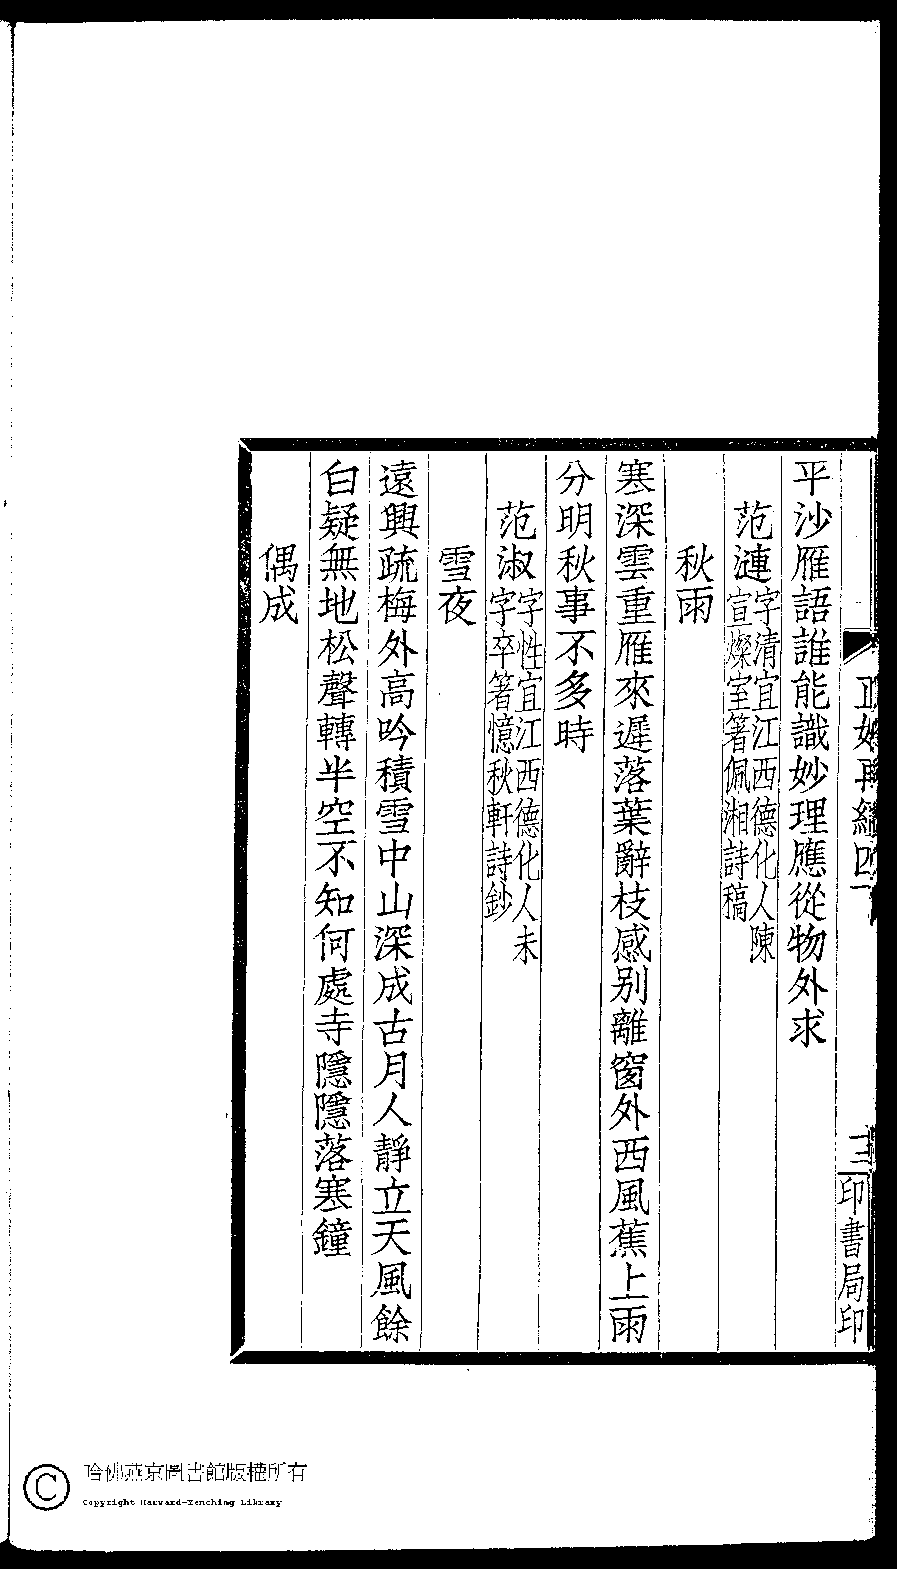 平沙雁語誰能識妙理應從物外求
范漣字清宜江西德化人陳
宣燦室著佩湘詩稿
秋雨
寒深雲重雁來遲落葉辭枝感別離窗外西風蕉上雨
分明秋事不多時
范淑字性宜江西德化人未
字卒箸憶秋軒詩鈔
雪夜
遠興疏梅外高吟積雪中山深成古月人靜立天風餘
白疑無地松聲轉半空不知何處寺隱隱落寒鐘
偶成
印書局印
哈佛燕京圖書館版權所有
Copyright Harvard-Yenching Library